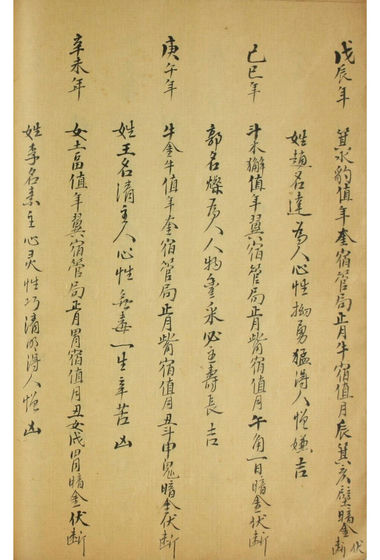 戊辰年　箕水豹值年奎宿管局正月牛宿值月辰箕亥壁暗金伏断
姓趙名達為人心性拗勇猛得人憎嫌吉
己巳年　斗木獬值年翼宿管局正月觜宿值月午角一日暗金伏断
郭名燦為人人物丰采必主壽長吉
庚午年　牛金牛值年奎宿管局正月觜宿值月丑斗申鬼暗金伏断
姓王名清主人心性無毒一生辛苦凶
辛未年　女土畐值年翼宿管局正月胃宿值月丑女戌胃暗金伏断
姓李名素主心灵性巧清明得人憎凶